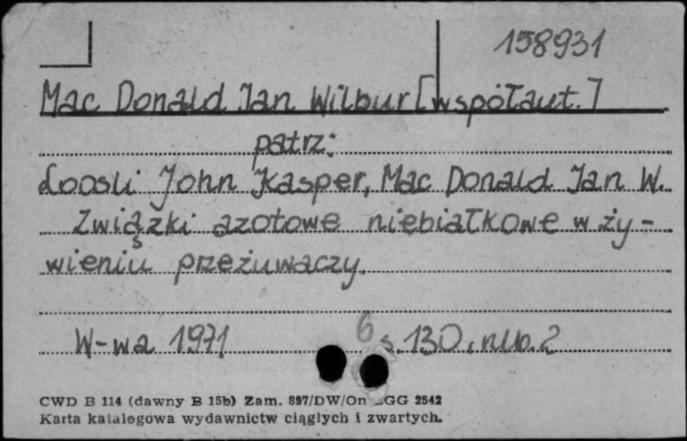 158931
Mac Donald Jan Wilbur [współaut.]
patrz:
Loosli John Kasper, Mac Donald Jan W.
Związki azotowe niebiałkowe w ży-
wieniu przeżuwaczy.
W-wa 1971 6 s. 130, nlb. 2
CWD B 114 (dawny B 15b) Zam. 897/DW/On GG 2542
Karta katalogowa wydawnictw ciągłych i zwartych.